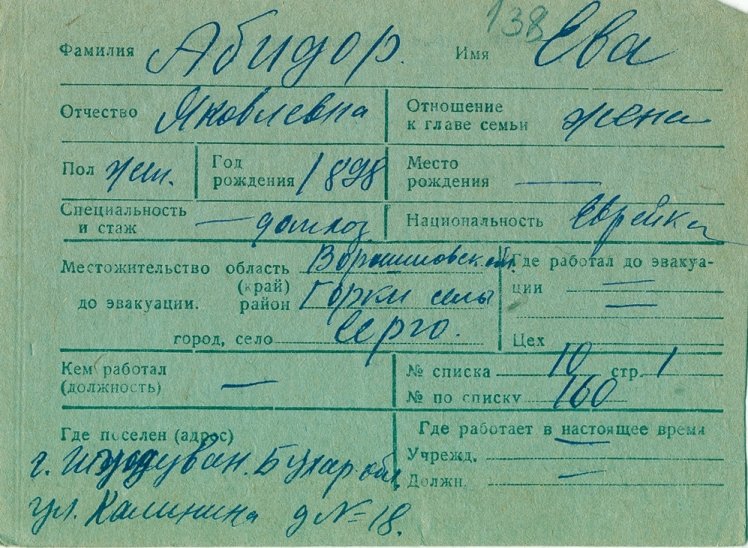 138
Фамилия Абидор. Имя Ева
Отчество Яковлевна Отношение к главе семьи жена
Пол жен. Год рождения 1898 Место рождения —
Специальность и стаж — домхоз. Национальность Еврейка
Местожительство до эвакуации. область (край) Ворошиловской обл.
район Горки селы
город, село Серго.
Где работал до эвакуации —
—
Цех
Кем работал (должность) —
№ списка 10 стр. 1
№ по списку 160
Где поселен (адрес)
г. Бухар. обл.
ул. Калинина д № 18.
Где работает в настоящее время —
Учрежд. —
Должн. —